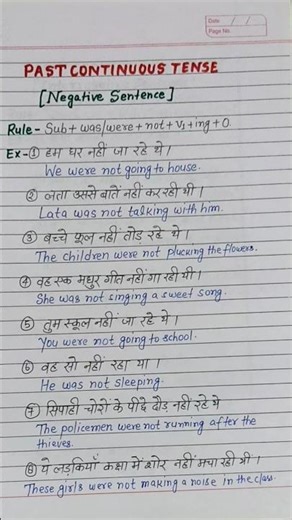 Date
Page No.
PAST CONTINUOUS TENSE
[Negative Sentence]
Rule - Sub + was/were + not + V₁ + ing + O
Ex - ① हम घर नहीं जा रहे थे।
We were not going to house.
② लता उससे बातें नहीं कर रही थी।
Lata was not talking with him.
③ बच्चे फूल नहीं तोड़ रहे थे।
The children were not plucking the flowers.
④ वह एक मधुर गीत नहीं गा रही थी।
She was not singing a sweet song.
⑤ तुम स्कूल नहीं जा रहे थे।
You were not going to school.
⑥ वह सो नहीं रहा था।
He was not sleeping.
⑦ सिपाही चोरों के पीछे दौड़ नहीं रहे थे
The policemen were not running after the
thieves.
⑧ ये लड़कियाँ कक्षा में शोर नहीं मचा रही थी।
These girls were not making a noise in the class.